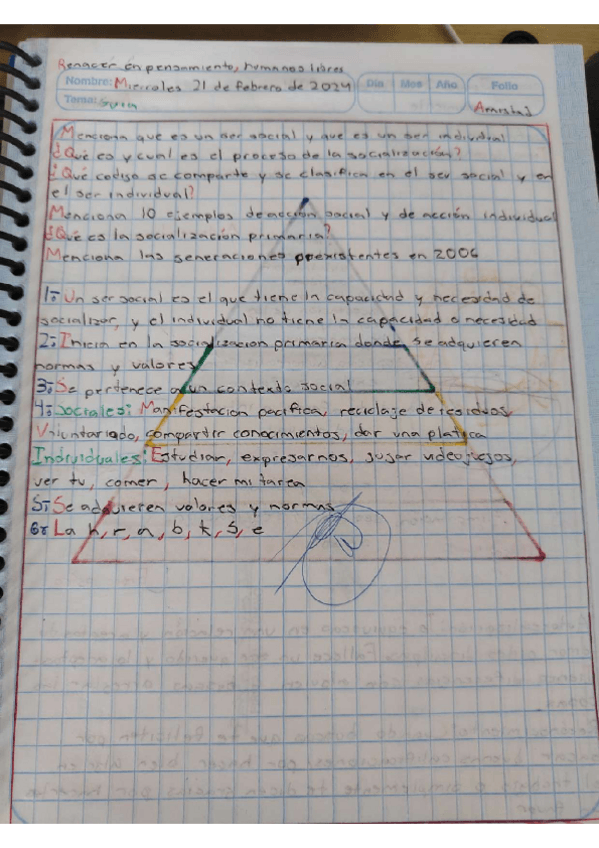 Renacer en pensamiento, humanos libres
Nombre: Miercoles 21 de febrero de 2024 Día Mes Año Folio
Tema: Guia
Menciona que es un ser social y que es un ser individual
¿Qué es y cual es el proceso de la socialización?
¿Qué codigo se comparte y se clasifica en el ser social y en
el ser individual?
Menciona 10 ejemplos de acción social y de acción individual
¿Qué es la socialización primaria?
Menciona las generaciones preexistentes en 2006
1:- Un ser social es el que tiene la capacidad y necesidad de
socializar, y el individual no tiene la capacidad o necesidad
2:- Inicia en la socialización primaria donde se adquieren
normas y valores
3:- Se pertenece a un contexto social
4:- Sociales: Manifestación pacifica, reciclaje de residuos,
Voluntariado, compartir conocimientos, dar una platica
Individuales: Estudiar, expresarnos, jugar videojuejos,
ver tv, comer, hacer mi tarea
5:- Se adquieren valores y normas
6:- La h, r, a, b, k, s, e